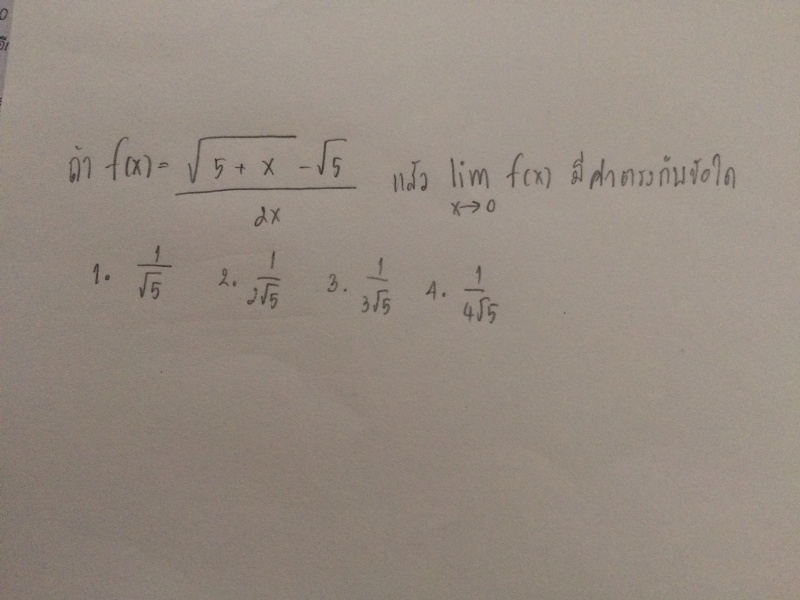 ถ้า f(x) = (√(5 + x) - √5) / 2x แล้ว lim x→0 f(x) มีค่าตรงกับข้อใด
1. 1/√5 2. 1/2√5 3. 1/3√5 4. 1/4√5